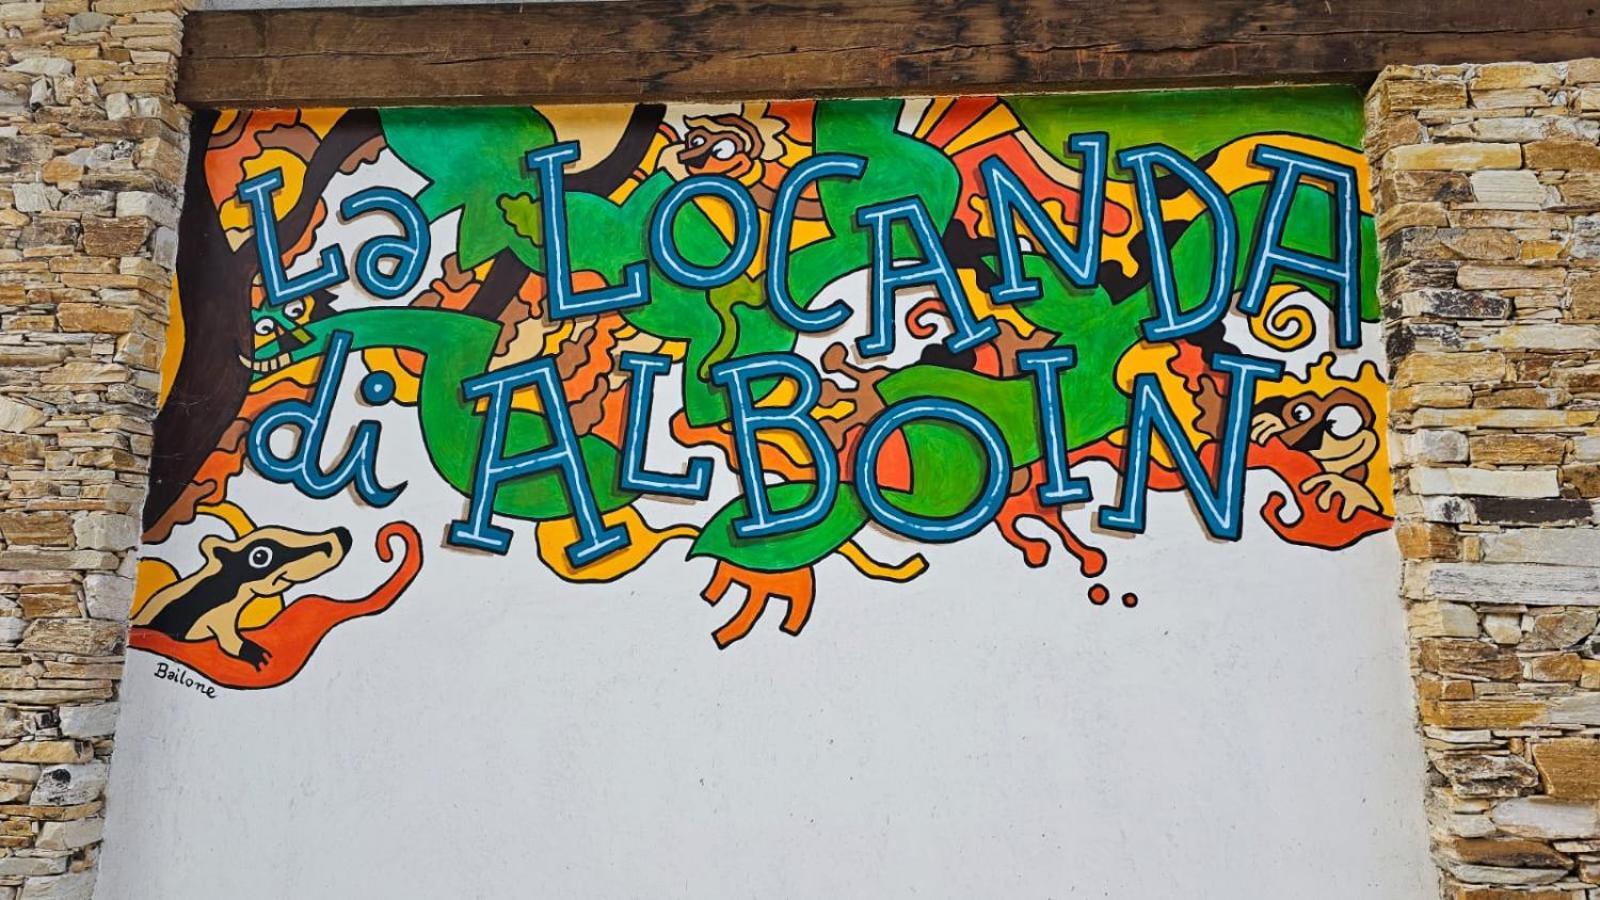 La LOCANDA
di ALBOIN
Bailone